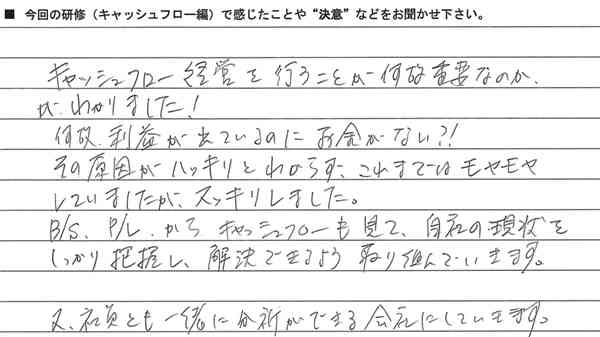 ■ 今回の研修(キャッシュフロー編)で感じたことや“決意”などをお聞かせ下さい。
キャッシュフロー経営を行うことが何故重要なのか、
が、わかりました!
何故、利益が出ているのにお金がない?!
その原因がハッキリとわからず、これまではモヤモヤ
していましたが、スッキリしました。
B/S、P/L、からキャッシュフローも見て、自社の現状を
しっかり把握し、解決できるよう取り組んでいきます。
又、社員とも一緒に分析ができる会社にしていきます。